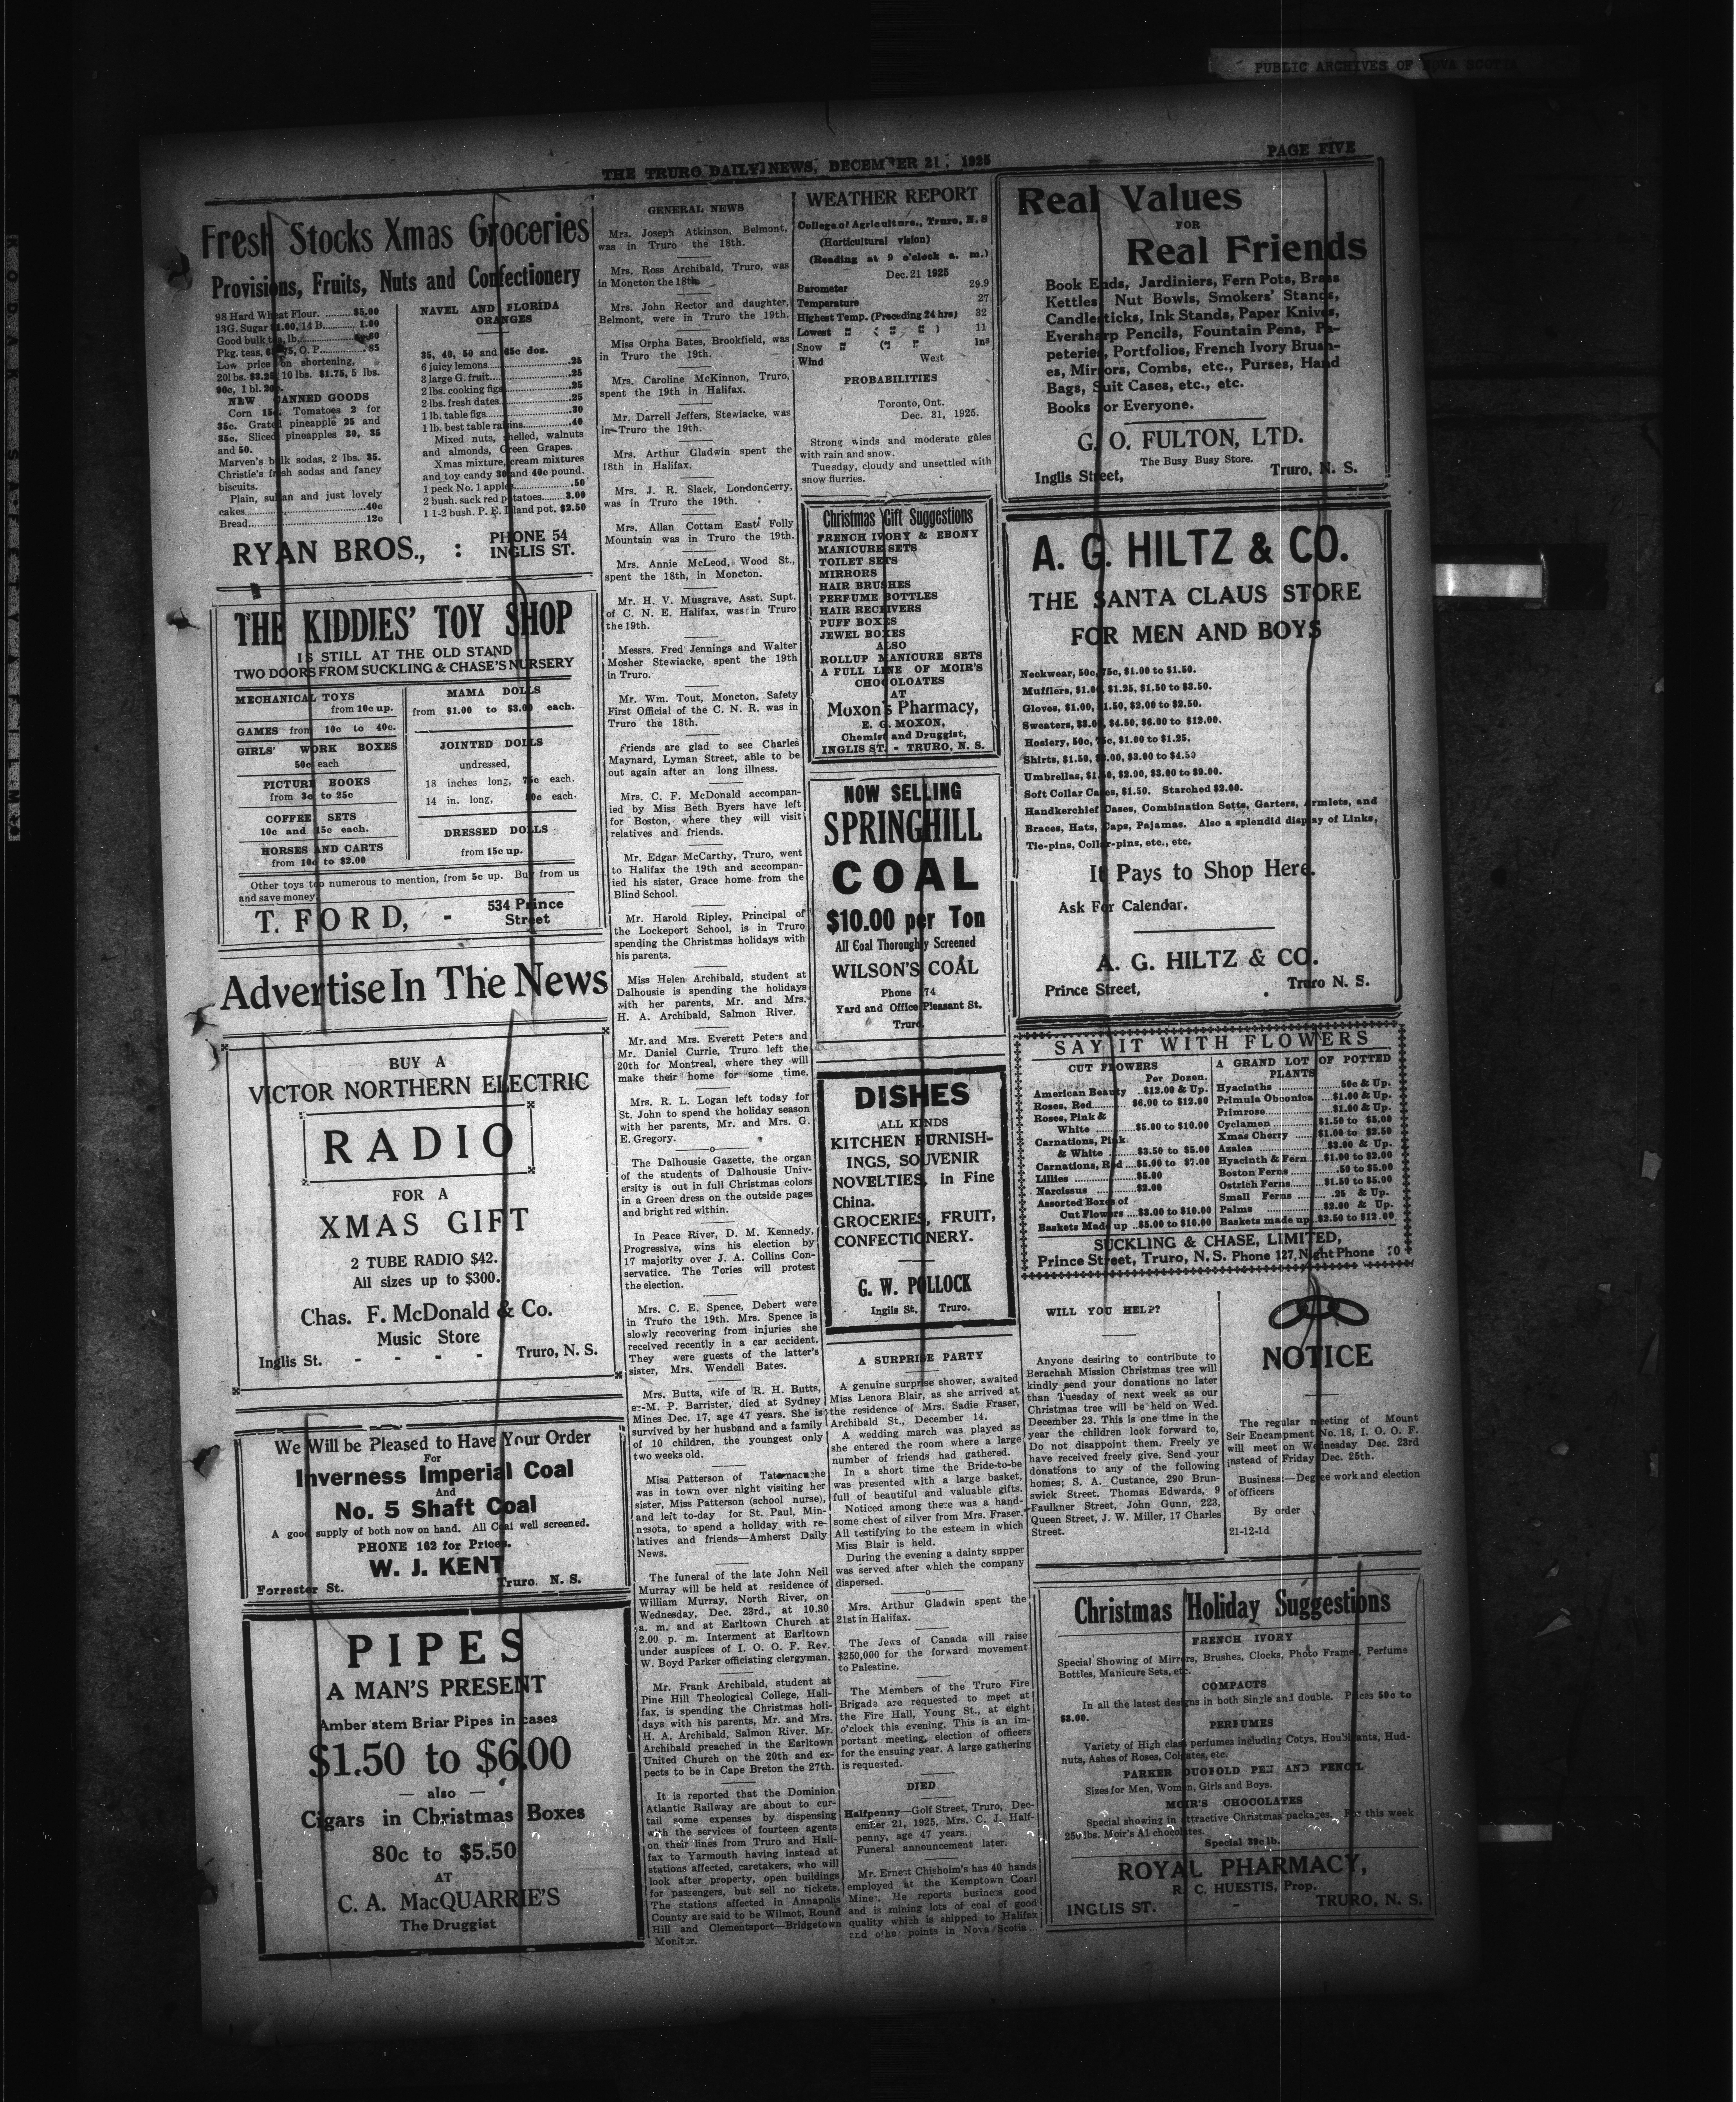 PUBLIC ARCHIVES OF NOVA SCOTIA
THE TRURO DAILY NEWS, DECEMBER 21, 1925
PAGE FIVE
Fresh Stocks Xmas Groceries
Provisions, Fruits, Nuts and Confectionery
98 Hard Wheat Flour. .........$5.00
13G. Sugar $1.00, 14 B.......... 1.00
Good bulk tea, lb.
Pkg. teas, O. P. .85
Low price on shortening,
20 lbs. $3.25, 10 lbs. $1.75, 5 lbs.
90c, 1 bl. 20c.
NEW CANNED GOODS
Corn 15c. Tomatoes 2 for
35c. Grated pineapple 25 and
35c. Sliced pineapples 30, 35
and 50.
Marven's bulk sodas, 2 lbs. 35.
Christie's fresh sodas and fancy
biscuits.
Plain, sultan and just lovely
cakes..............40c
Bread..............12c
NAVEL AND FLORIDA
ORANGES
35, 40, 50 and 65c doz.
6 juicy lemons..............25
3 large G. fruit..............25
2 lbs. cooking figs..............25
2 lbs. fresh dates..............25
1 lb. table figs..............30
1 lb. best table raisins..............40
Mixed nuts, shelled, walnuts
and almonds, Green Grapes.
Xmas mixture, cream mixtures
and toy candy 30 and 40c pound.
1 peck No. 1 apples..............50
2 bush. sack red potatoes........3.00
1 1-2 bush. P. E. Island pot. $2.50
RYAN BROS., :
PHONE 54
INGLIS ST.
THE KIDDIES' TOY SHOP
IS STILL AT THE OLD STAND
TWO DOORS FROM SUCKLING & CHASE'S NURSERY
MECHANICAL TOYS
from 10c up.
GAMES from 10c to 40c.
GIRLS' WORK BOXES
50c each
PICTURE BOOKS
from 3c to 25c
COFFEE SETS
10c and 15c each.
HORSES AND CARTS
from 10c to $2.00
MAMA DOLLS
from $1.00 to $3.00 each.
JOINTED DOLLS
undressed,
18 inches long, 75c each.
14 in. long, each.
DRESSED DOLLS
from 15c up.
Other toys too numerous to mention, from 5c up. Buy from us
and save money.
T. FORD, -
534 Prince
Street
Advertise In The News
BUY A
VICTOR NORTHERN ELECTRIC
RADIO
FOR A
XMAS GIFT
2 TUBE RADIO $42.
All sizes up to $300.
Chas. F. McDonald & Co.
Music Store
Inglis St. - - - - Truro, N. S.
We Will be Pleased to Have Your Order
For
Inverness Imperial Coal
And
No. 5 Shaft Coal
A good supply of both now on hand. All Coal well screened.
PHONE 162 for Prices.
W. J. KENT
Forrester St. Truro. N. S.
PIPES
A MAN'S PRESENT
Amber stem Briar Pipes in cases
$1.50 to $6.00
— also —
Cigars in Christmas Boxes
80c to $5.50
AT
C. A. MacQUARRIE'S
The Druggist
GENERAL NEWS
Mrs. Joseph Atkinson, Belmont,
was in Truro the 18th.
Mrs. Ross Archibald, Truro, was
in Moncton the 18th.
Mrs. John Rector and daughter,
Belmont, were in Truro the 19th.
Miss Orpha Bates, Brookfield, was
in Truro the 19th.
Mrs. Caroline McKinnon, Truro,
spent the 19th in Halifax.
Mr. Darrell Jeffers, Stewiacke, was
in Truro the 19th.
Mrs. Arthur Gladwin spent the
18th in Halifax.
Mrs. J. R. Slack, Londonderry,
was in Truro the 19th.
Mrs. Allan Cottam East Folly
Mountain was in Truro the 19th.
Mrs. Annie McLeod, Wood St.,
spent the 18th, in Moncton.
Mr. H. V. Musgrave, Asst. Supt.
of C. N. E. Halifax, was in Truro
the 19th.
Messrs. Fred Jennings and Walter
Mosher Stewiacke, spent the 19th
in Truro.
Mr. Wm. Tout, Moncton, Safety
First Official of the C. N. R. was in
Truro the 18th.
Friends are glad to see Charles
Maynard, Lyman Street, able to be
out again after an long illness.
Mrs. C. F. McDonald accompan-
ied by Miss Beth Byers have left
for Boston, where they will visit
relatives and friends.
Mr. Edgar McCarthy, Truro, went
to Halifax the 19th and accompan-
ied his sister, Grace home from the
Blind School.
Mr. Harold Ripley, Principal of
the Lockeport School, is in Truro
spending the Christmas holidays with
his parents.
Miss Helen Archibald, student at
Dalhousie is spending the holidays
with her parents, Mr. and Mrs.
H. A. Archibald, Salmon River.
Mr. and Mrs. Everett Peters and
Mr. Daniel Currie, Truro left the
20th for Montreal, where they will
make their home for some time.
Mrs. R. L. Logan left today for
St. John to spend the holiday season
with her parents, Mr. and Mrs. G.
E. Gregory.
The Dalhousie Gazette, the organ
of the students of Dalhousie Univ-
ersity is out in full Christmas colors
in a Green dress on the outside pages
and bright red within.
In Peace River, D. M. Kennedy,
Progressive, wins his election by
17 majority over J. A. Collins Con-
servatice. The Tories will protest
the election.
Mrs. C. E. Spence, Debert were
in Truro the 19th. Mrs. Spence is
slowly recovering from injuries she
received recently in a car accident.
They were guests of the latter's
sister, Mrs. Wendell Bates.
Mrs. Butts, wife of R. H. Butts,
ex-M. P. Barrister, died at Sydney
Mines Dec. 17, age 47 years. She is
survived by her husband and a family
of 10 children, the youngest only
two weeks old.
Miss Patterson of Tatamagouche
was in town over night visiting her
sister, Miss Patterson (school nurse),
and left to-day for St. Paul, Min-
nesota, to spend a holiday with re-
latives and friends—Amherst Daily
News.
The funeral of the late John Neil
Murray will be held at residence of
William Murray, North River, on
Wednesday, Dec. 23rd., at 10.30
a. m. and at Earltown Church at
2.00 p. m. Interment at Earltown
under auspices of I. O. O. F. Rev.
W. Boyd Parker officiating clergyman.
Mr. Frank Archibald, student at
Pine Hill Theological College, Hali-
fax, is spending the Christmas holi-
days with his parents, Mr. and Mrs.
H. A. Archibald, Salmon River. Mr.
Archibald preached in the Earltown
United Church on the 20th and ex-
pects to be in Cape Breton the 27th.
It is reported that the Dominion
Atlantic Railway are about to cur-
tail some expenses by dispensing
with the services of fourteen agents
on their lines from Truro and Hali-
fax to Yarmouth having instead at
stations affected, caretakers, who will
look after property, open buildings
for passengers, but sell no tickets.
The stations affected in Annapolis
County are said to be Wilmot, Round
Hill and Clementsport—Bridgetown
Monitor.
WEATHER REPORT
College of Agriculture., Truro, N. S
(Horticultural vision)
(Reading at 9 o'clock a. m.)
Dec. 21 1925
Barometer 29.9
Temperature 27
Highest Temp. (Preceding 24 hrs) 32
Lowest " ( " " ) 11
Snow " (" " Ins
Wind West
PROBABILITIES
Toronto, Ont.
Dec. 31, 1925.
Strong winds and moderate gales
with rain and snow.
Tuesday, cloudy and unsettled with
snow flurries.
Christmas Gift Suggestions
FRENCH IVORY & EBONY
MANICURE SETS
TOILET SETS
MIRRORS
HAIR BRUSHES
PERFUME BOTTLES
HAIR RECEIVERS
PUFF BOXES
JEWEL BOXES
ALSO
ROLLUP MANICURE SETS
A FULL LINE OF MOIR'S
CHOCOLOATES
AT
Moxon's Pharmacy,
E. G. MOXON,
Chemist and Druggist,
INGLIS ST. - TRURO, N. S.
NOW SELLING
SPRINGHILL
COAL
$10.00 per Ton
All Coal Thoroughly Screened
WILSON'S COAL
Phone 74
Yard and Office Pleasant St.
Truro.
DISHES
ALL KINDS
KITCHEN FURNISH-
INGS, SOUVENIR
NOVELTIES, in Fine
China.
GROCERIES, FRUIT,
CONFECTIONERY.
G. W. POLLOCK
Inglis St. Truro.
A SURPRISE PARTY
A genuine surprise shower, awaited
Miss Lenora Blair, as she arrived at
the residence of Mrs. Sadie Fraser,
Archibald St., December 14.
A wedding march was played as
she entered the room where a large
number of friends had gathered.
In a short time the Bride-to-be
was presented with a large basket,
full of beautiful and valuable gifts.
Noticed among there was a hand-
some chest of silver from Mrs. Fraser,
All testifying to the esteem in which
Miss Blair is held.
During the evening a dainty supper
was served after which the company
dispersed.
Mrs. Arthur Gladwin spent the
21st in Halifax.
The Jews of Canada will raise
$250,000 for the forward movement
to Palestine.
The Members of the Truro Fire
Brigade are requested to meet at
the Fire Hall, Young St., at eight
o'clock this evening. This is an im-
portant meeting, election of officers
for the ensuing year. A large gathering
is requested.
DIED
Halfpenny—Golf Street, Truro, Dec-
ember 21, 1925, Mrs. C. J. Half-
penny, age 47 years.
Funeral announcement later.
Mr. Ernest Chisholm's has 40 hands
employed at the Kemptown Coarl
Mine. He reports business good
and is mining lots of coal of good
quality which is shipped to Halifax
and other points in Nova Scotia.
Real Values
FOR
Real Friends
Book Ends, Jardiniers, Fern Pots, Brass
Kettles, Nut Bowls, Smokers' Stands,
Candlesticks, Ink Stands, Paper Knives,
Eversharp Pencils, Fountain Pens, Pa-
peteries, Portfolios, French Ivory Brush-
es, Mirrors, Combs, etc., Purses, Hand
Bags, Suit Cases, etc., etc.
Books for Everyone.
G. O. FULTON, LTD.
The Busy Busy Store.
Inglis Street, Truro, N. S.
A. G. HILTZ & CO.
THE SANTA CLAUS STORE
FOR MEN AND BOYS
Neckwear, 50c, 75c, $1.00 to $1.50.
Mufflers, $1.00, $1.25, $1.50 to $3.50.
Gloves, $1.00, $1.50, $2.00 to $2.50.
Sweaters, $3.00, $4.50, $6.00 to $12.00.
Hosiery, 50c, 75c, $1.00 to $1.25.
Shirts, $1.50, $2.00, $3.00 to $4.50
Umbrellas, $1.50, $2.00, $3.00 to $9.00.
Soft Collar Cases, $1.50. Starched $2.00.
Handkerchief Cases, Combination Setts, Garters, Armlets, and
Braces, Hats, Caps, Pajamas. Also a splendid display of Links,
Tie-pins, Collar-pins, etc., etc.
It Pays to Shop Here.
Ask For Calendar.
A. G. HILTZ & CO.
Prince Street, Truro N. S.
SAY IT WITH FLOWERS
CUT FLOWERS
Per Dozen.
American Beauty ..$12.00 & Up.
Roses, Red.......... $6.00 to $12.00
Roses, Pink &
White ............$5.00 to $10.00
Carnations, Pink
& White ........$3.50 to $5.00
Carnations, Red ....$5.00 to $7.00
Lillies ..............$5.00
Narcissus ............$2.00
Assorted Boxes of
Cut Flowers ....$3.00 to $10.00
Baskets Made up ..$5.00 to $10.00
A GRAND LOT OF POTTED
PLANTS
Hyacinths ..............50c & Up.
Primula Obconica ....$1.00 & Up.
Primrose..............$1.00 & Up.
Cyclamen ............$1.50 to $5.00
Xmas Cherry ......$1.00 to $2.50
Azalea ..............$3.00 & Up.
Hyacinth & Fern....$1.00 to $2.00
Boston Ferns ..........50 to $5.00
Ostrich Ferns........$1.50 to $5.00
Small Ferns ........ .25 & Up.
Palms ..............$2.00 & Up.
Baskets made up..$2.50 to $12.00
SUCKLING & CHASE, LIMITED,
Prince Street, Truro, N. S. Phone 127, Night Phone
WILL YOU HELP?
Anyone desiring to contribute to
Berachah Mission Christmas tree will
kindly send your donations no later
than Tuesday of next week as our
Christmas tree will be held on Wed.
December 23. This is one time in the
year the children look forward to,
Do not disappoint them. Freely ye
have received freely give. Send your
donations to any of the following
homes; S. A. Custance, 290 Brun-
swick Street. Thomas Edwards, 9
Faulkner Street, John Gunn, 223,
Queen Street, J. W. Miller, 17 Charles
Street.
NOTICE
The regular meeting of Mount
Seir Encampment No. 18, I. O. O. F.
will meet on Wednesday Dec. 23rd
instead of Friday Dec. 25th.
Business:—Degree work and election
of officers
By order
21-12-1d
Christmas Holiday Suggestions
FRENCH IVORY
Special Showing of Mirrors, Brushes, Clocks, Photo Frames, Perfume
Bottles, Manicure Sets, etc.
COMPACTS
In all the latest designs in both Single and double. Prices 50c to
$3.00.
PERFUMES
Variety of High class perfumes including Cotys, Houbigants, Hud-
nuts, Ashes of Roses, Colgates, etc.
PARKER DUOFOLD PEN AND PENCIL
Sizes for Men, Women, Girls and Boys.
MOIR'S CHOCOLATES
Special showing in attractive Christmas packages. For this week
250 lbs. Moir's A1 chocolates.
Special 39c lb.
ROYAL PHARMACY,
R. C. HUESTIS, Prop.
INGLIS ST. - TRURO, N. S.